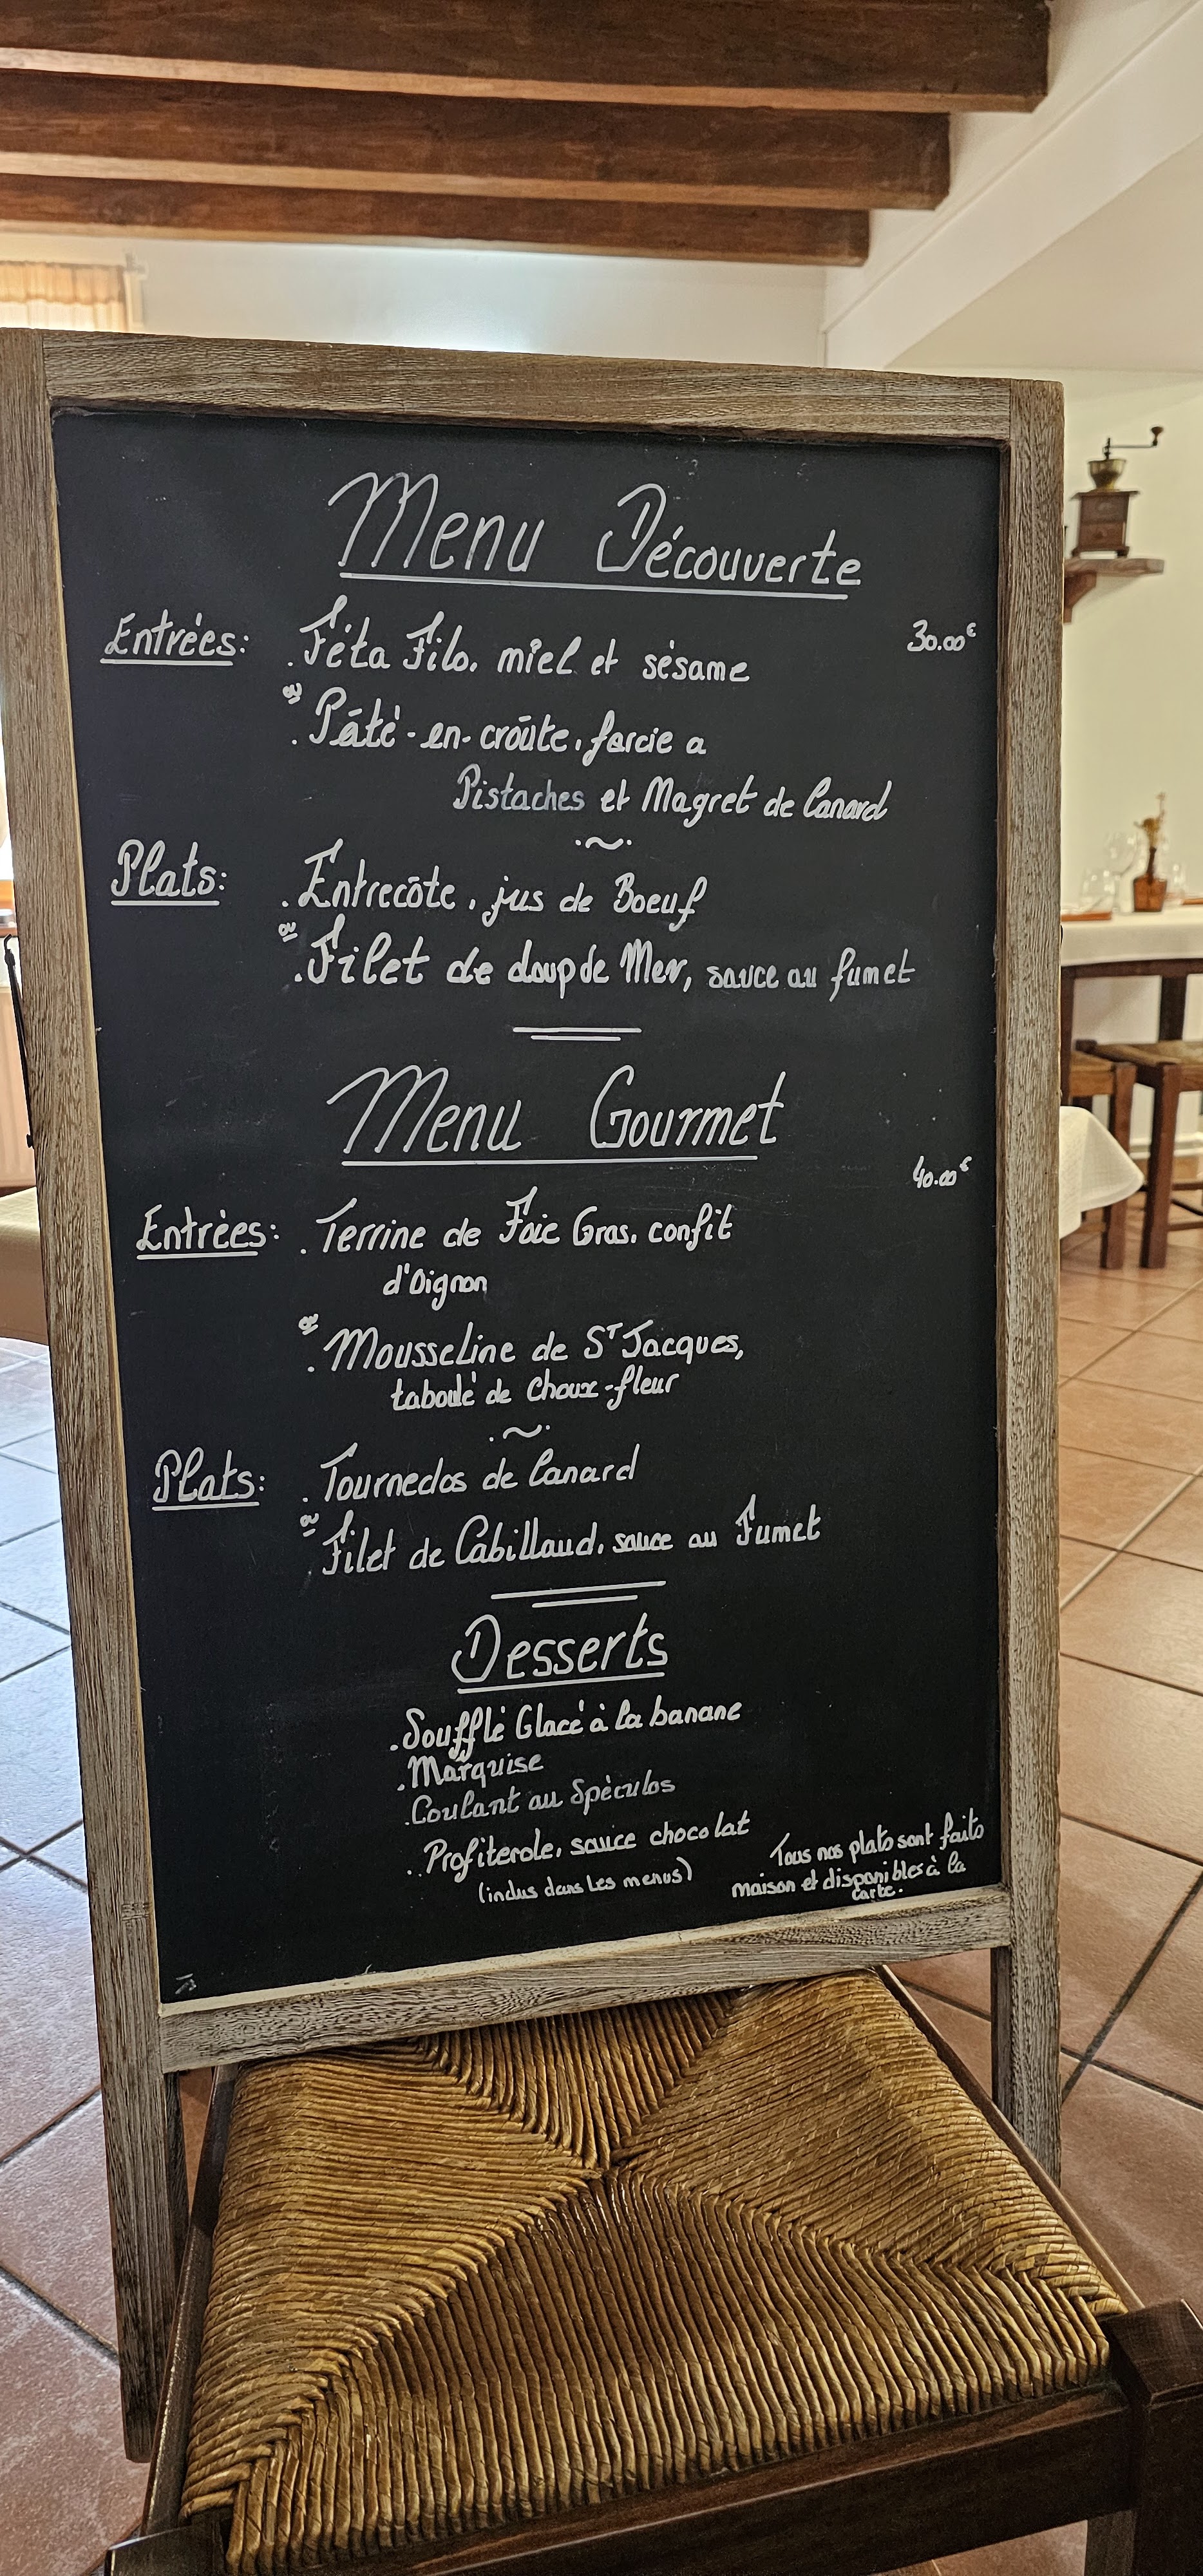 Menu Découverte
30.00€
Entrées: . Féta Filo, miel et sésame
ou
. Pâté-en-croûte, farcie a
Pistaches et Magret de Canard
.~.
Plats: . Entrecôte, jus de Boeuf
ou
. Filet de Loup de Mer, sauce au fumet
Menu Gourmet
40.00€
Entrées: . Terrine de Foie Gras, confit
d'Oignon
ou
. Mousseline de St Jacques,
taboulé de Choux-fleur
.~.
Plats: . Tournedos de Canard
ou
. Filet de Cabillaud, sauce au Fumet
Desserts
. Soufflé Glacé à la banane
. Marquise
. Coulant au Spéculos
. Profiterole, sauce chocolat
(inclus dans les menus)
Tous nos plats sont faits
maison et disponibles à la
carte.